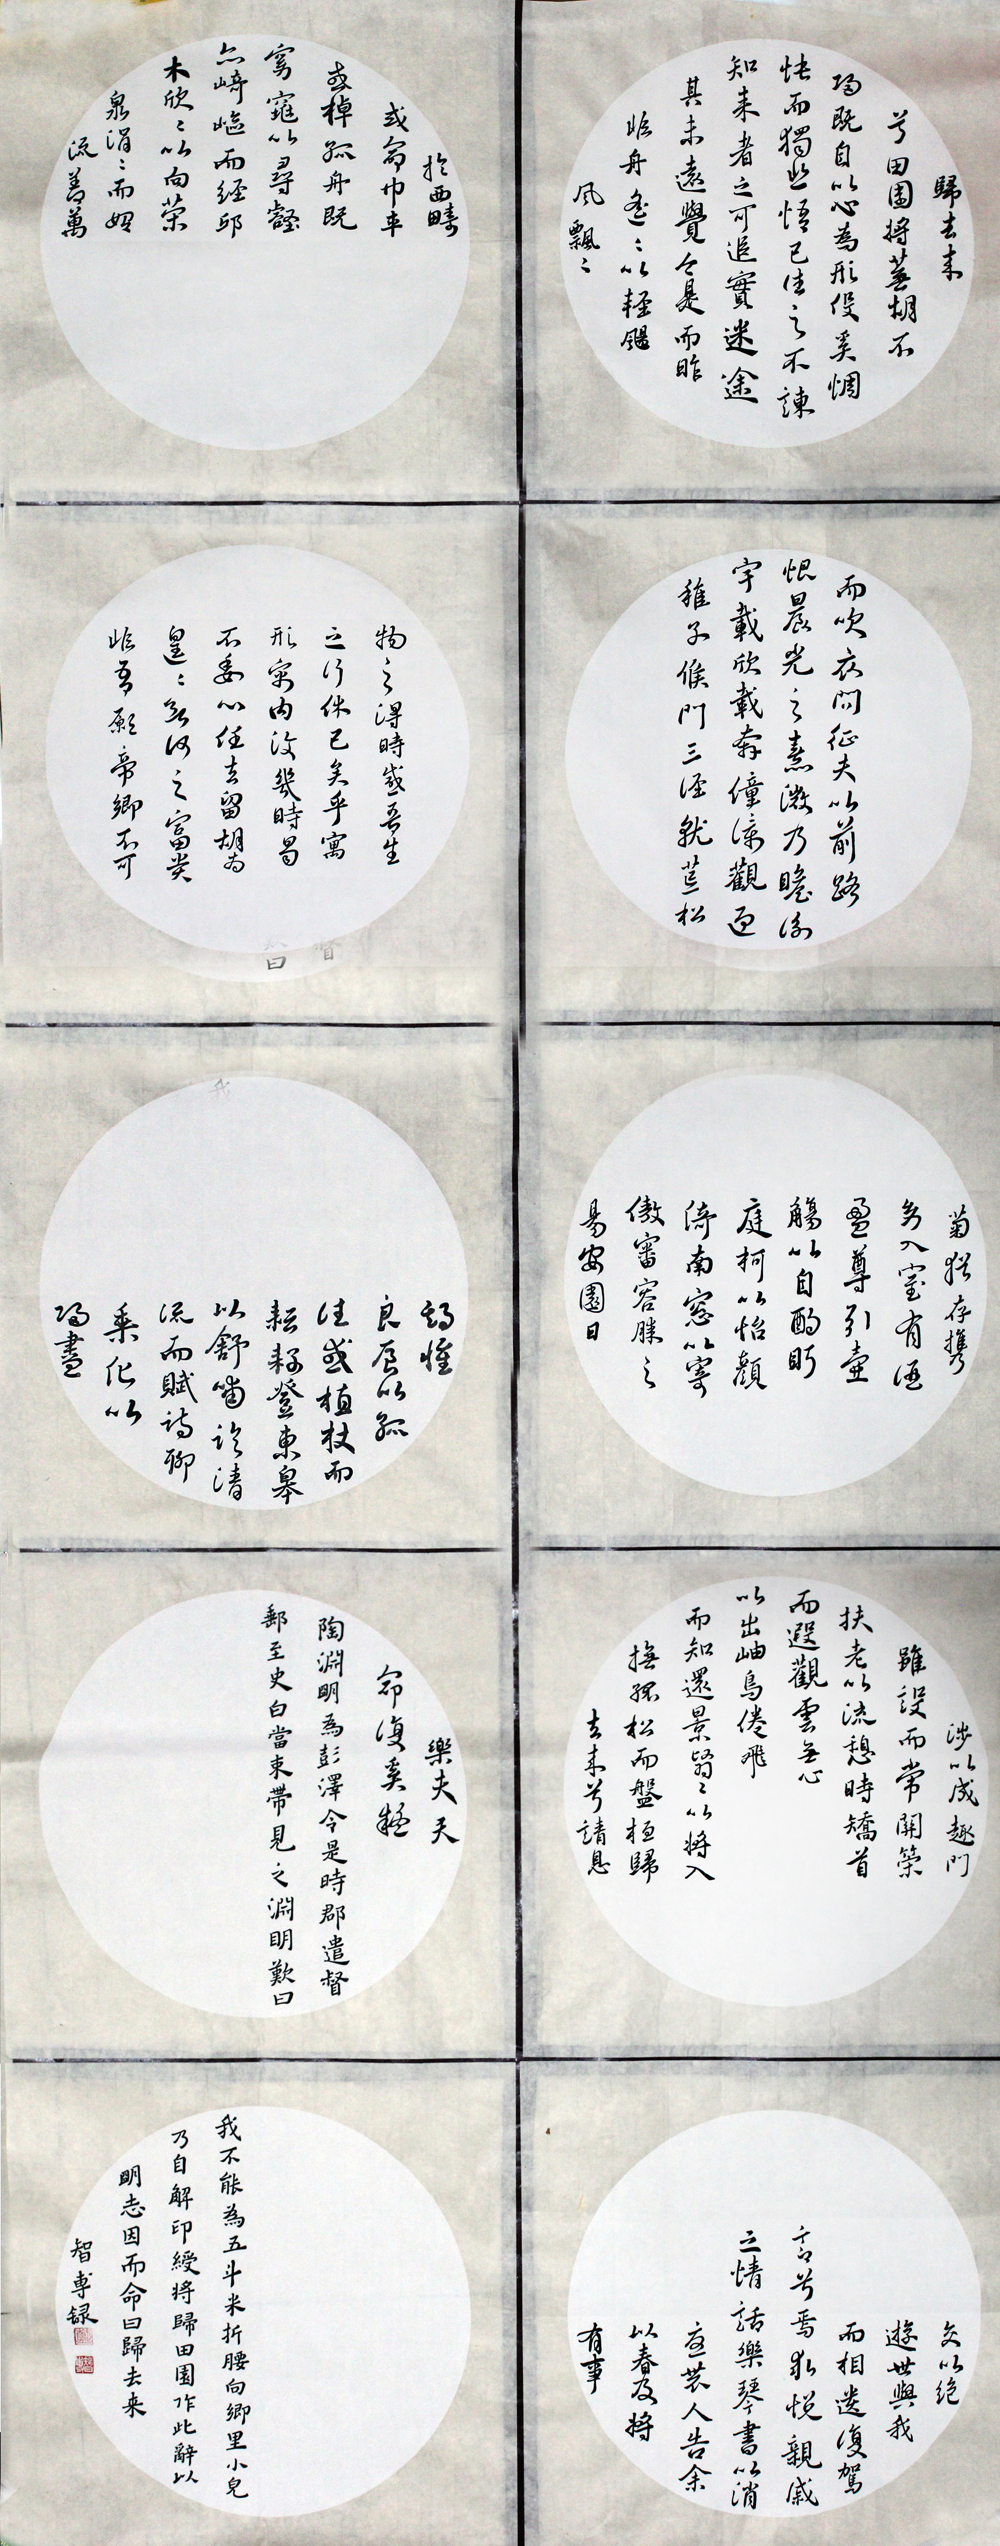 歸去来
兮田園將蕪胡不
歸既自以心為形役奚惆
悵而獨悲悟已往之不諫
知来者之可追實迷途
其未遠覺今是而昨
非舟遙〻以輕颺
風飄〻
而吹衣問征夫以前路
恨晨光之熹微乃瞻衡
宇載欣載奔僮僕觀迎
稚子候門三徑就荒松
菊猶存攜
幼入室有酒
盈尊引壺
觴以自酌眄
庭柯以怡顏
倚南窗以寄
傲審容膝之
易安園日
涉以成趣門
雖設而常關策
扶老以流憩時矯首
而遐觀雲無心
以出岫鳥倦飛
而知還景翳〻以將入
撫孤松而盤桓歸
去来兮請息
交以絕
遊世與我
而相遺復駕
言兮焉求悅親戚
之情話樂琴書以消
憂農人告余
以春及將
有事
於西疇
或命巾車
或棹孤舟既
窈窕以尋壑
亦崎嶇而經邱
木欣〻以向榮
泉涓〻而始
流善萬
物之得時感吾生
之行休已矣乎寓
形宇內復幾時曷
不委心任去留胡為
遑〻欲何之富貴
非吾願帝鄉不可
期懷
良辰以孤
往或植杖而
耘耔登東皋
以舒嘯臨清
流而賦詩聊
乘化以
歸盡
樂夫天
命復奚疑
陶淵明為彭澤令是時郡遣督
郵至史白當束帶見之淵明歎曰
我不能為五斗米折腰向鄉里小兒
乃自解印綬將歸田園作此辭以
明志因而命曰歸去来
智專録